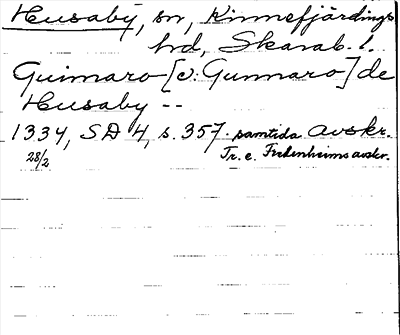 Husaby, sn, Kinnefjärdings
hd, Skarab. l.
Guimaro [v: Gunnaro] de
Husaby --
1334, SD 4, s. 357. samtida avskr.
28/2 Tr. e. Fredenheims avskr.